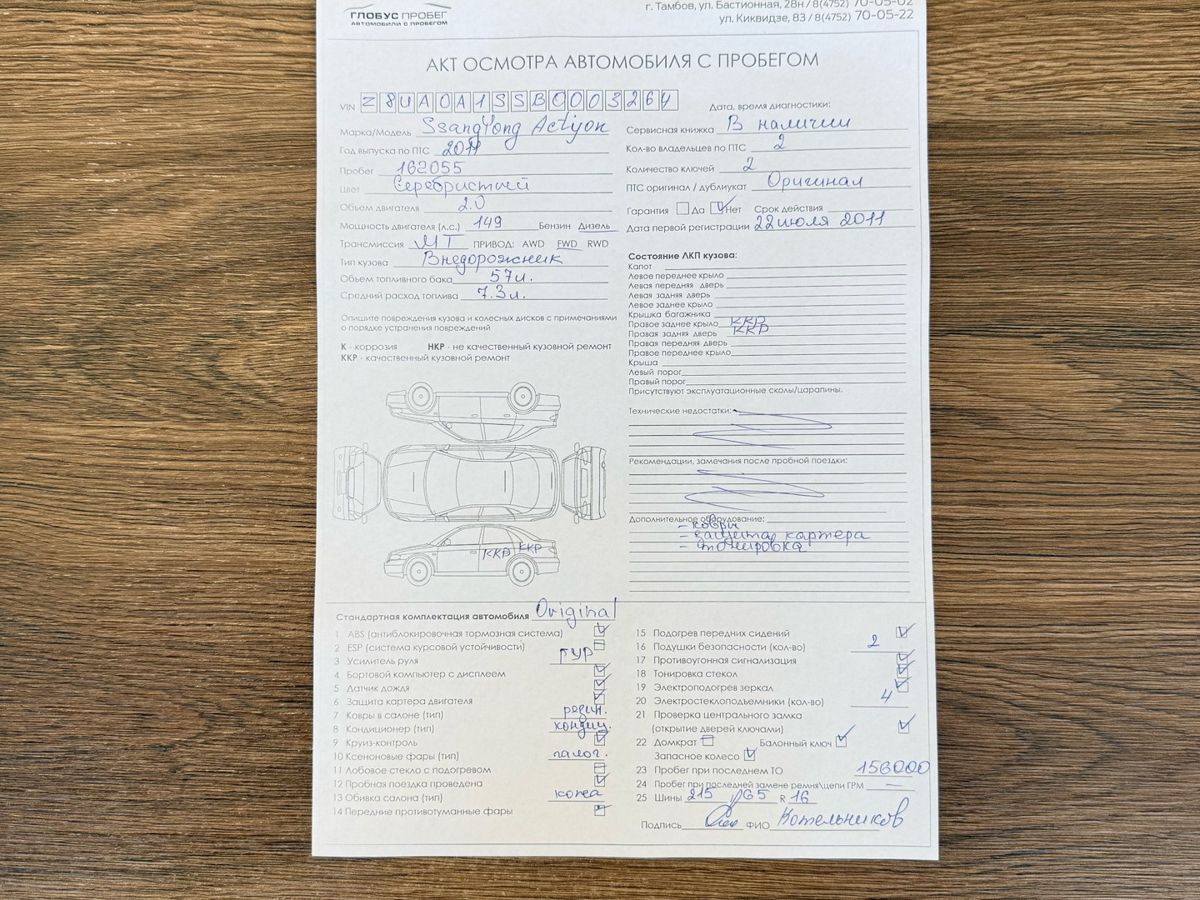 ГЛОБУС ПРОБЕГ
АВТОМОБИЛИ С ПРОБЕГОМ
г. Тамбов, ул. Бастионная, 28н / 8(4752) 70-05-02
ул. Киквидзе, 83 / 8(4752) 70-05-22
АКТ ОСМОТРА АВТОМОБИЛЯ С ПРОБЕГОМ
VIN Z8UA0A1SSB0003264
Марка/Модель SsangYong Actyon
Год выпуска по ПТС 2011
Пробег 162055
Цвет Серебристый
Объем двигателя 2.0
Мощность двигателя (л.с.) 149 Бензин Дизель
Трансмиссия МТ ПРИВОД: AWD FWD RWD
Тип кузова Внедорожник
Объем топливного бака 57л.
Средний расход топлива 7.3л.
Опишите повреждения кузова и колесных дисков с примечаниями
о порядке устранения повреждений
К - коррозия НКР - не качественный кузовной ремонт
ККР - качественный кузовной ремонт
ККР ККР
Дата, время диагностики:
Сервисная книжка В наличии
Кол-во владельцев по ПТС 2
Количество ключей 2
ПТС оригинал / дубликат Оригинал
Гарантия Да Нет Срок действия
Дата первой регистрации 22 июля 2011
Состояние ЛКП кузова:
Капот
Левое переднее крыло
Левая передняя дверь
Левая задняя дверь
Левое заднее крыло
Крышка багажника
Правое заднее крыло ККР
Правая задняя дверь ККР
Правая передняя дверь
Правое переднее крыло
Крыша
Левый порог
Правый порог
Присутствуют эксплуатационные сколы/царапины.
Технические недостатки:
Рекомендации, замечания после пробной поездки:
Дополнительное оборудование:
- ковры
- защита картера
- тонировка
Стандартная комплектация автомобиля Original
1 ABS (антиблокировочная тормозная система)
2 ESP (система курсовой устойчивости)
3 Усилитель руля ГУР
4 Бортовой компьютер с дисплеем
5 Датчик дождя
6 Защита картера двигателя
7 Ковры в салоне (тип) резин.
8 Кондиционер (тип) кондиц.
9 Круиз-контроль
10 Ксеноновые фары (тип) галог.
11 Лобовое стекло с подогревом
12 Пробная поездка проведена
13 Обивка салона (тип) кожа
14 Передние противотуманные фары
15 Подогрев передних сидений
16 Подушки безопасности (кол-во) 2
17 Противоугонная сигнализация
18 Тонировка стекол
19 Электроподогрев зеркал
20 Электростеклоподъемники (кол-во) 4
21 Проверка центрального замка
(открытие дверей ключами)
22 Домкрат Балонный ключ
Запасное колесо
23 Пробег при последнем ТО 156000
24 Пробег при последней замене ремня\цепи ГРМ —
25 Шины 215 / 65 R 16
Подпись ФИО Котельников